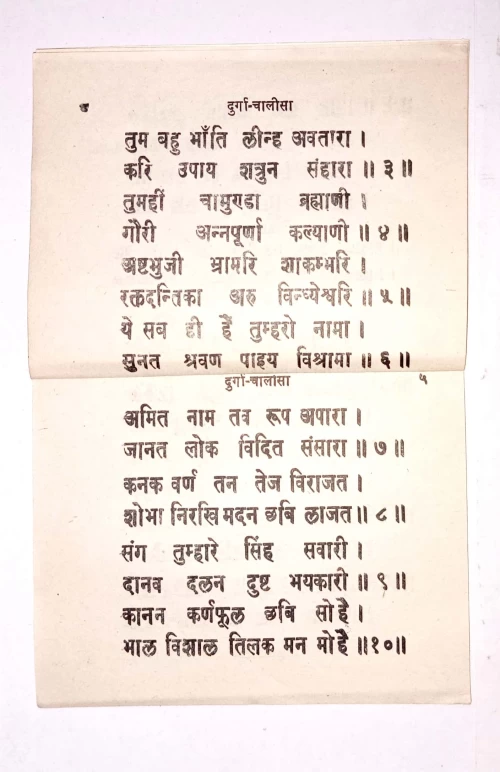 ४
दुर्गा-चालीसा
तुम बहु भाँति लीन्ह अवतारा ।
करि उपाय शत्रुन संहारा ॥ ३ ॥
तुमहीं चामुण्डा ब्रह्माणी ।
गौरी अन्नपूर्णा कल्याणी ॥ ४ ॥
अष्टभुजी भ्रामरि शाकम्भरि ।
रक्तदन्तिका अरु विन्ध्येश्वरि ॥ ५ ॥
ये सब ही हैं तुम्हरो नामा ।
सुनत श्रवण पाइय विश्रामा ॥ ६ ॥
दुर्गा-चालीसा
५
अमित नाम तव रूप अपारा ।
जानत लोक विदित संसारा ॥ ७ ॥
कनक वर्ण तन तेज विराजत ।
शोभा निरखि मदन छबि लाजत ॥ ८ ॥
संग तुम्हारे सिंह सवारी ।
दानव दलन दुष्ट भयकारी ॥ ९ ॥
कानन कर्णफूल छबि सोहै ।
भाल विशाल तिलक मन मोहै ॥१०॥